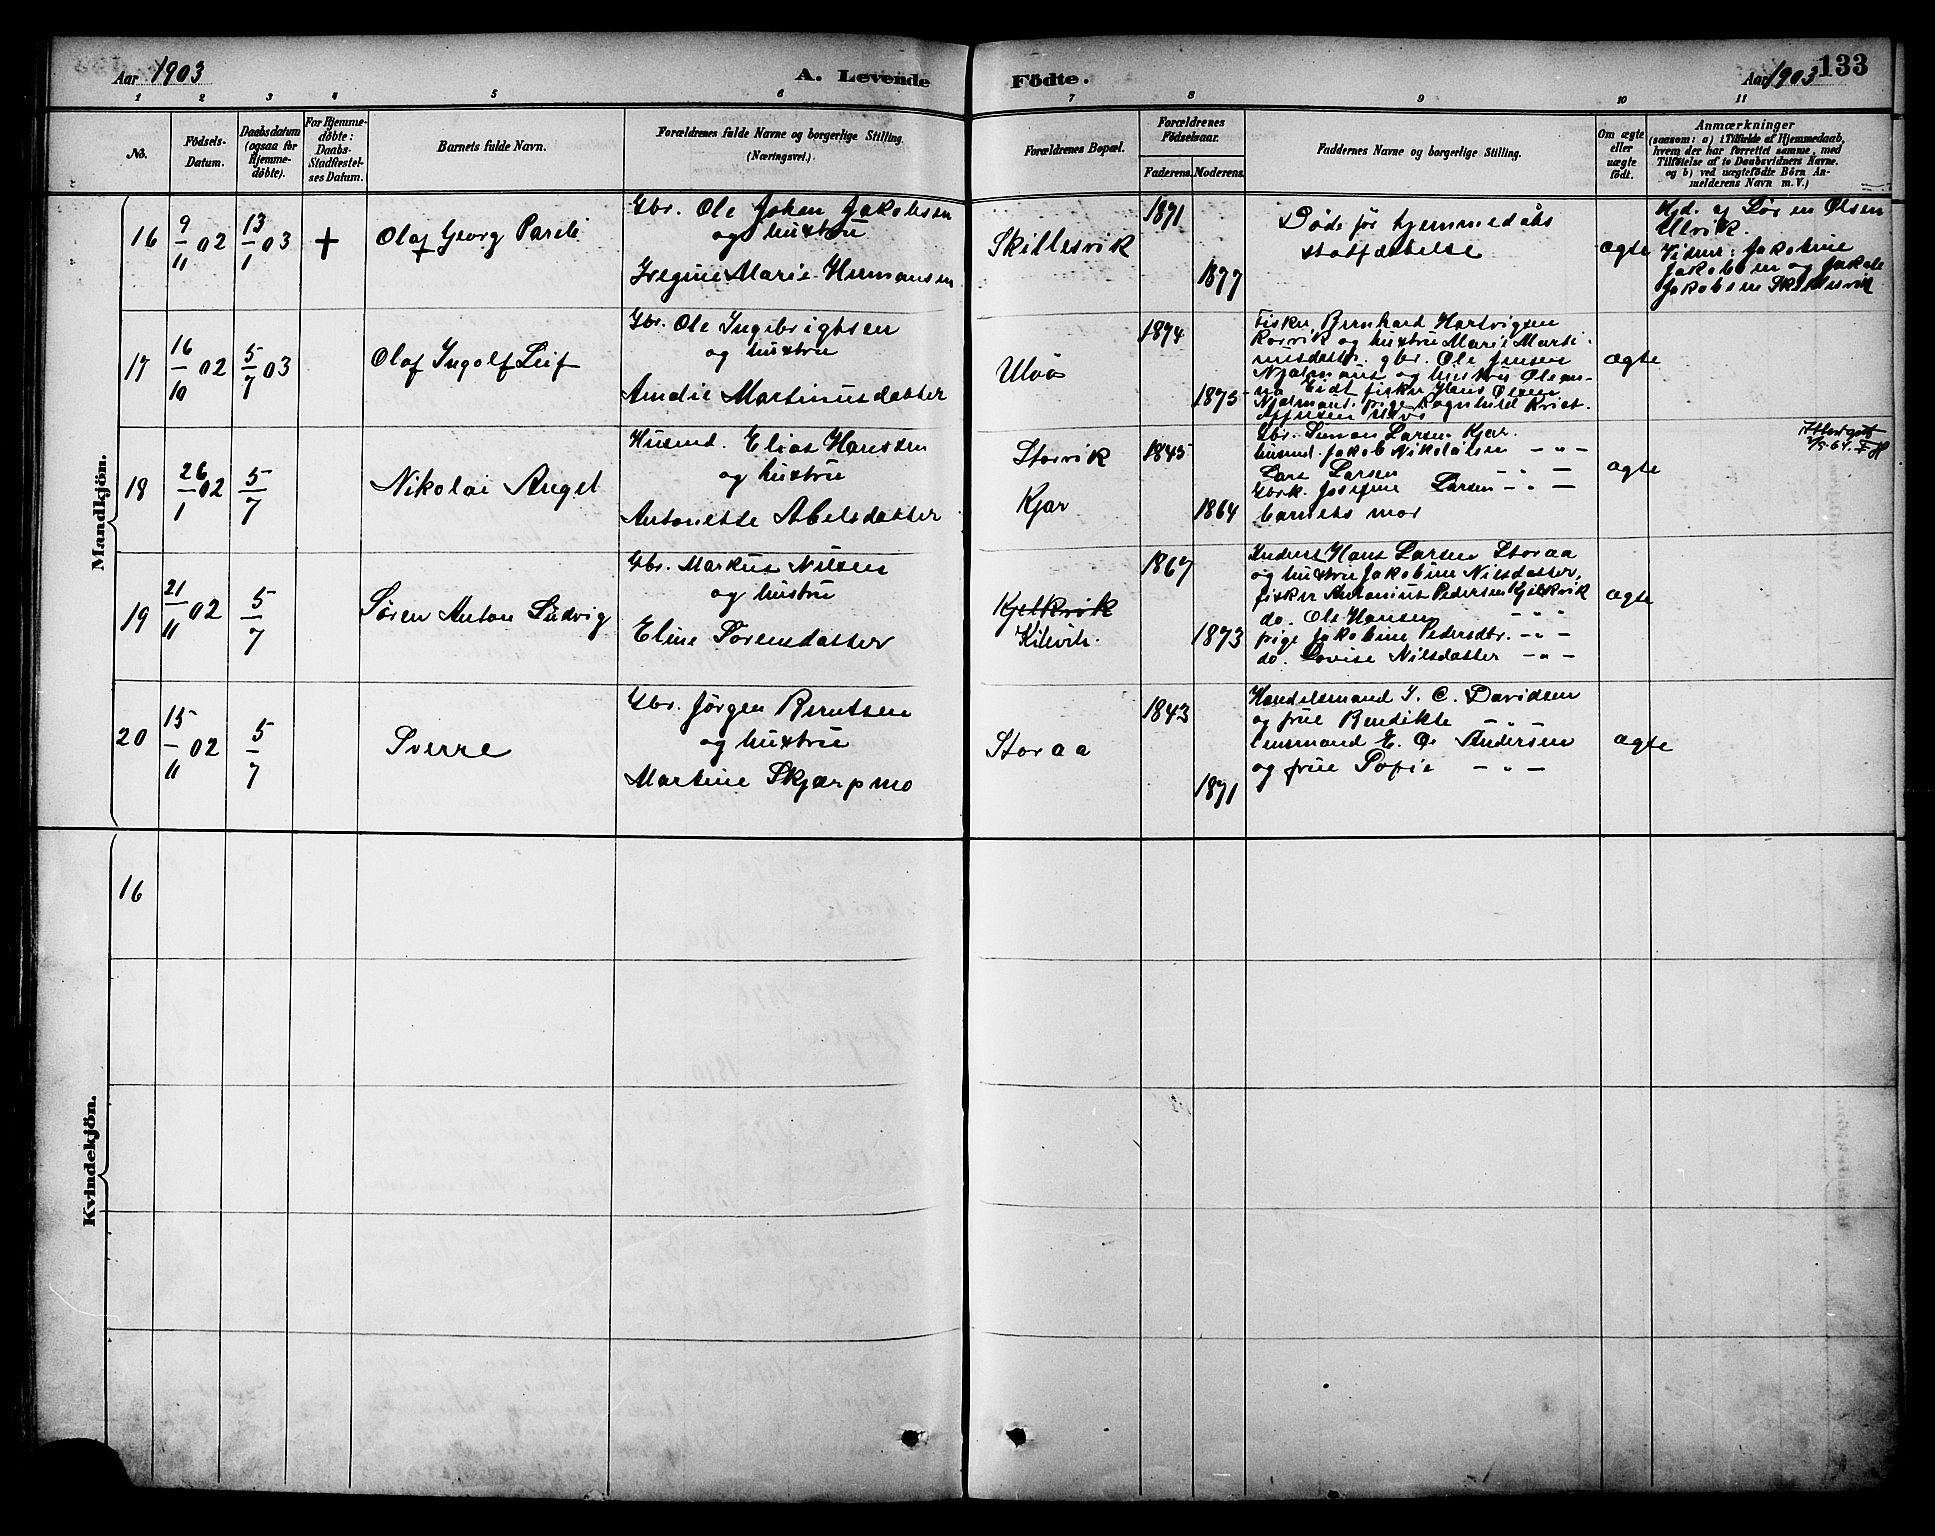 Aar 1903
A. Levende
Födte.
Aar 1903
133
1 2 3 4 5 6 7 8 9 10 11
No.
Födsels-
Datum.
Daabsdatum
(ogsaa for
Hjemme-
døbte).
For Hjemme-
døbte:
Daabs-
Stadfæstel-
ses Datum.
Barnets fulde Navn.
Forældrenes fulde Navne og borgerlige Stilling.
(Næringsvei.)
Forældrenes Bopæl.
Forældrenes
Födselsaar.
Faderens. Moderens.
Faddernes Navne og borgerlige Stilling.
Om ægte
eller
uægte
født.
Anmærkninger
(saasom: a) i Tilfælde af Hjemmedaab,
hvem der har forrettet samme, med
Tilföielse af to Daabsvidners Navne.
og b) ved uægtefødte Börn An-
melderens Navn m. V.)
Mandkjön.
16
9/11 02
13/1 03
+
Olaf Georg Pareli
Gbr. Ole Johan Jakobsen
og hustru
Regine Marie Hermansen
Skillesvik
1871
1877
Døde før hjemmedåbs
stadfæstelse
ægte
Hjd. af Sören Olsen
Ulvik.
Vidner: Jakobine
Jakobsen og Jakob
Jakobsen Skillesvik
17
16/10 02
5/7 03
Olaf Ingolf Leif
Gbr. Ole Ingebrigtsen
og hustru
Amalie Martinusdatter
Ulöö
1874
1875
Fisker Bernhard Hartvigsen
Korvik og hustru Marie Marti-
nusdatter. gbr. Ole Jensen
og hustru
fisker Hans Olsen
pige Ragnhild Krist-
ægte
18
26/1 02
5/7
Nikolai Angel
Husmd. Elias Hanssen
og hustru
Antonette Abelsdatter
Storvik
Kjar
1845
1864
Gbr. Simon Larsen Kjar.
husmd. Jakob Nikolaisen - " -
Lars Larsen - " -
Gbrk. Josefine Larsen - " -
barnets mor
ægte
19
21/11 02
5/7
Sören Anton Ludvig
Gbr. Markus Nilsen
og hustru
Eline Sörensdatter
Kjelkvik
Kilvik.
1867
1873
Hans Larsen Storaa
og hustru Jakobine Nilsdatter,
fisker Antonius Pedersen Kjelkvik
do. Ole Hansen - " -
pige Jakobine Pedersdtr. - " -
do. Lovise Nilsdatter - " -
ægte
20
15/11 02
5/7
Sverre
Gbr. Jörgen Berntsen
og hustru
Martine Skjærpmo
Storaa
1843
1871
Handelsmand J. C. Davidsen
og frue Bendikte - " -
lensmand E. O. Andersen
og frue Sofie - " -
ægte
Kvindekjön.
16